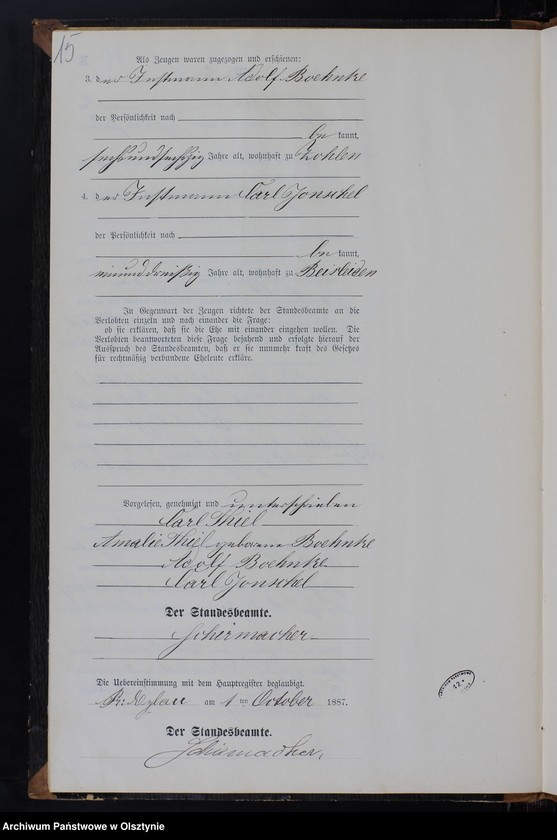 15
Als Zeugen waren zugezogen und erschienen:
3. der Instmann Adolf Boehnke
der Persönlichkeit nach
be kannt,
sechsundsechzig Jahre alt, wohnhaft zu Zohlen
4. der Instmann Carl Jonschel
der Persönlichkeit nach
be kannt,
neununddreißig Jahre alt, wohnhaft zu Beisleiden
In Gegenwart der Zeugen richtete der Standesbeamte an die
Verlobten einzeln und nach einander die Frage:
ob sie erklären, daß sie die Ehe mit einander eingehen wollen. Die
Verlobten beantworteten diese Frage bejahend und erfolgte hierauf der
Ausspruch des Standesbeamten, daß er sie nunmehr kraft des Gesetzes
für rechtmäßig verbundene Eheleute erkläre.
Vorgelesen, genehmigt und unterschrieben
Carl Thiel
Amalie Thiel geborene Boehnke
Adolf Boehnke
Carl Jonschel
Der Standesbeamte.
Schirmacher
Die Uebereinstimmung mit dem Hauptregister beglaubigt.
Pr: Eylau am 1ten October 1887.
Der Standesbeamte.
Schirmacher.
Archiwum Państwowe w Olsztynie